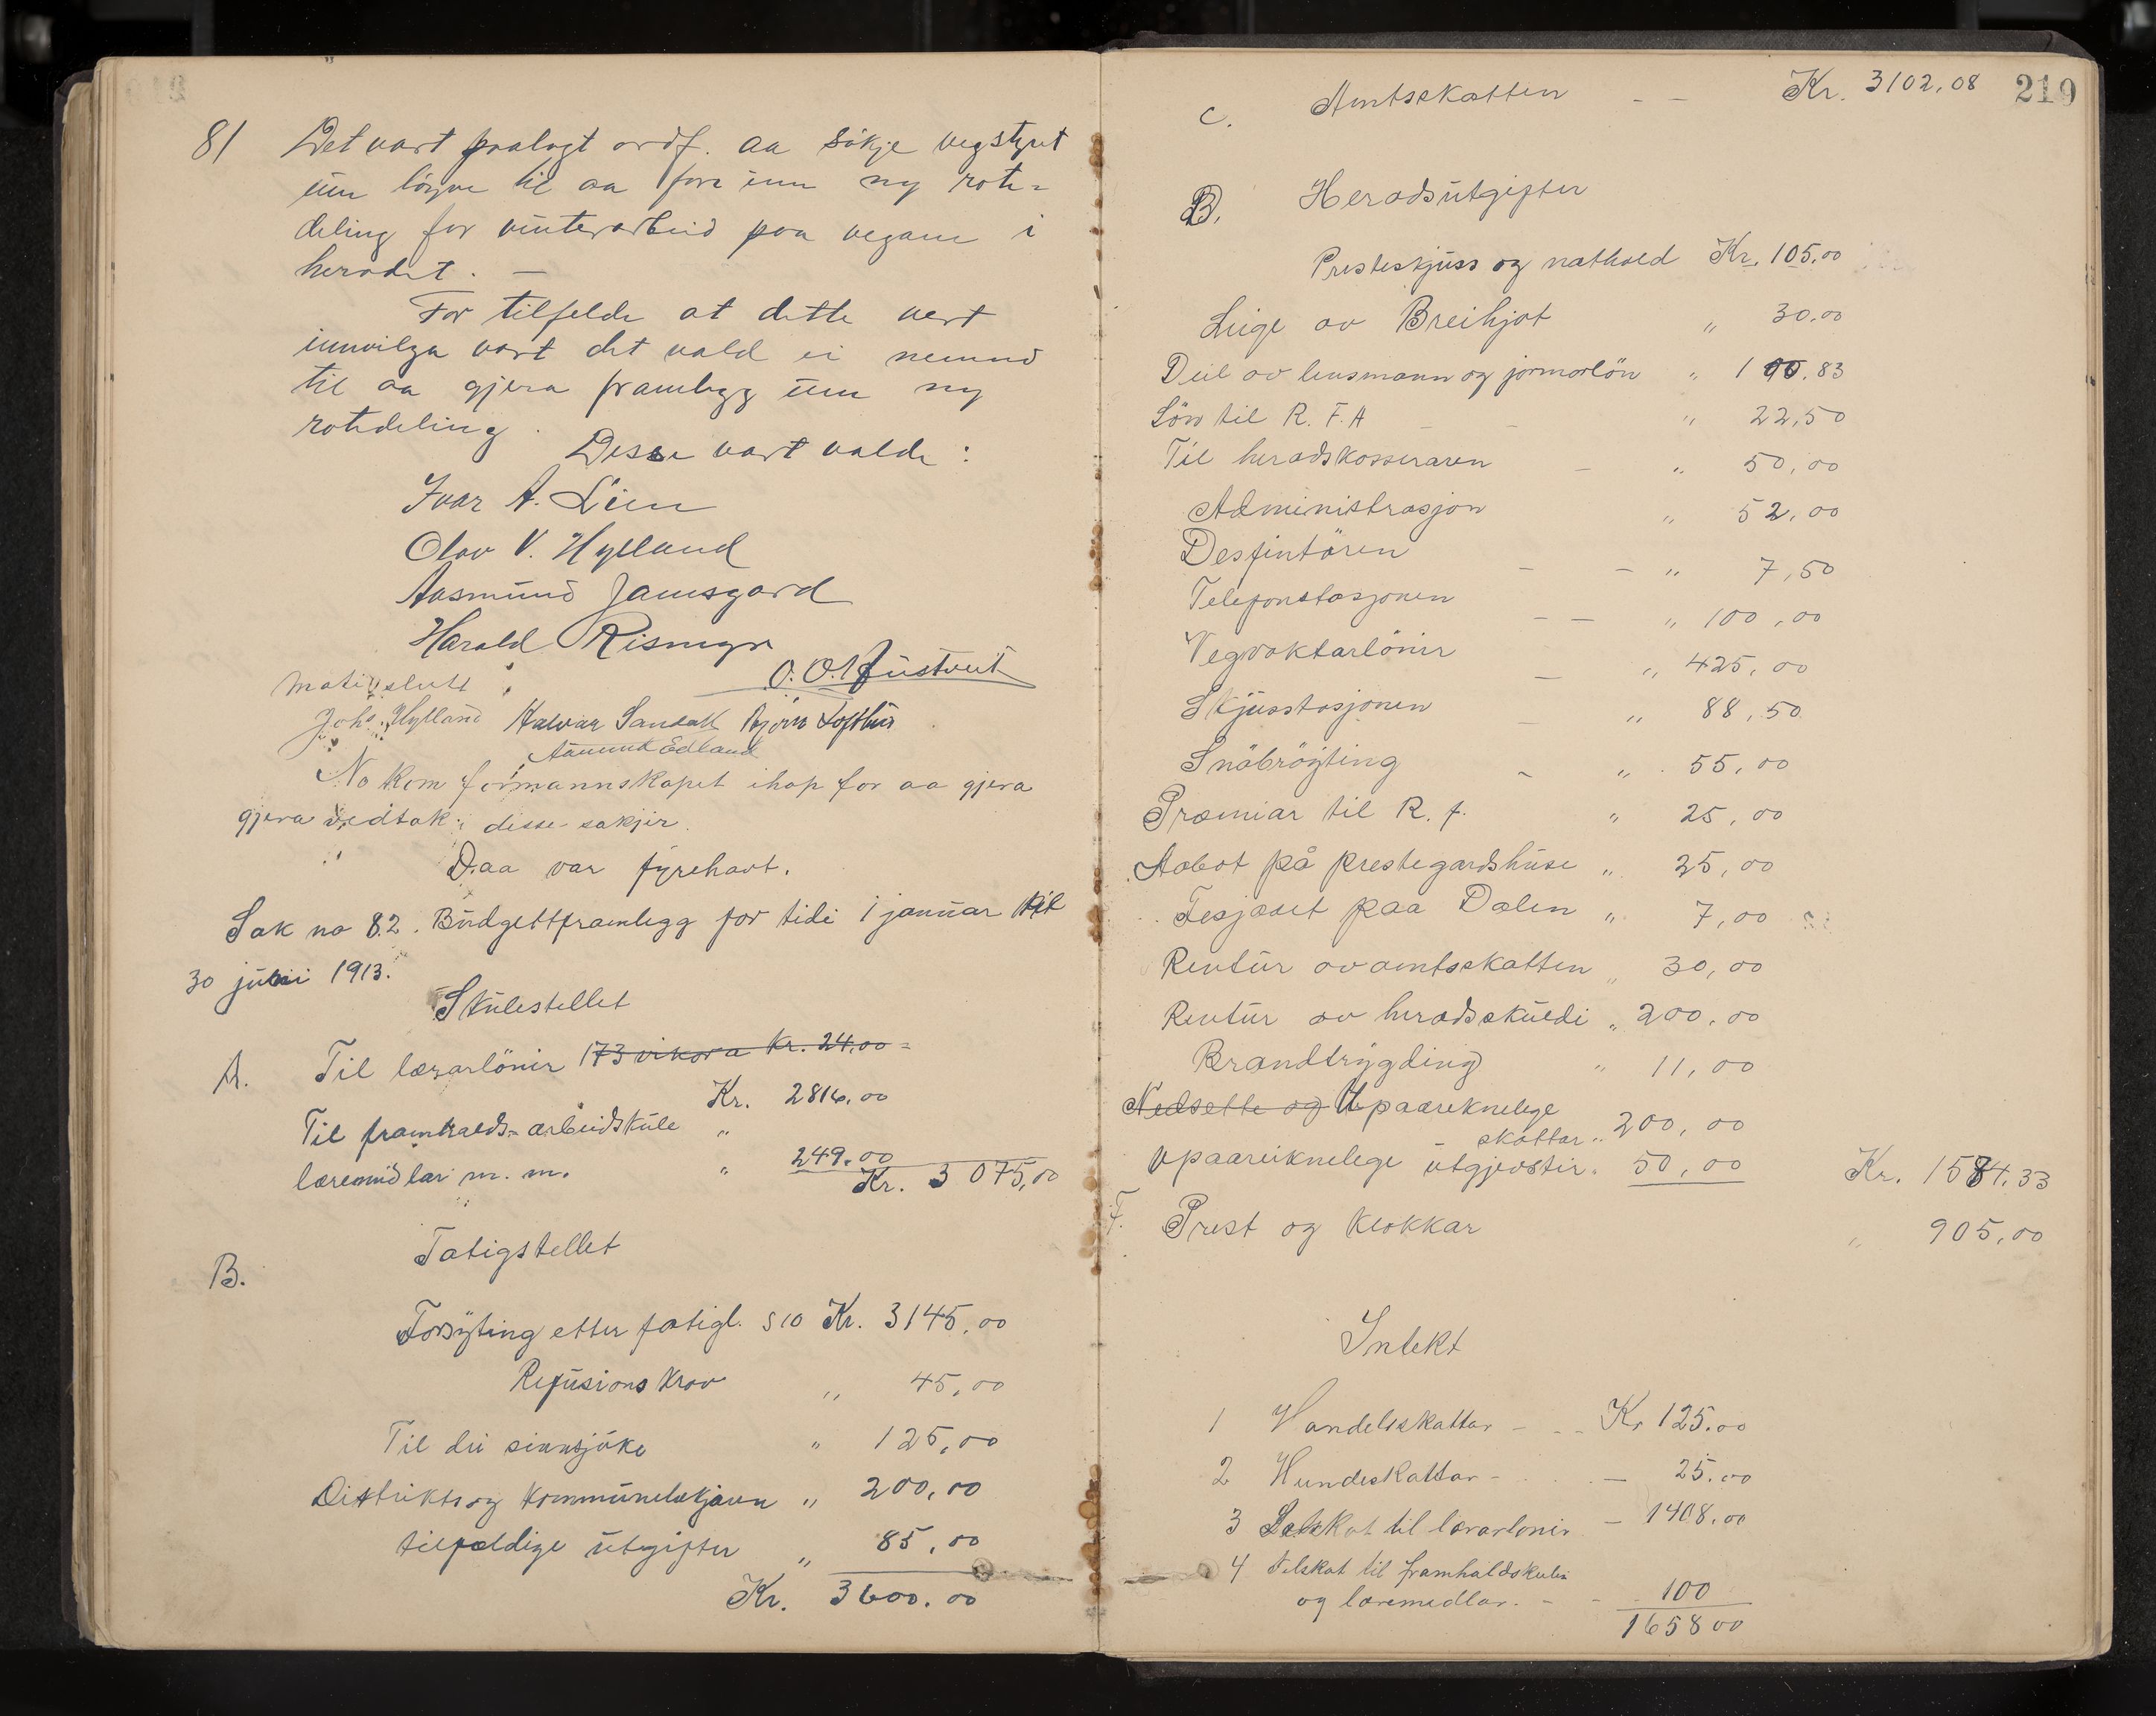 81 Det vart paalagt ordf. aa søkje vegstyret
um løyve til aa fora inn ny rote-
deling for vinterarbeid paa vegane i
heradet. —
For tilfelde at dette vert
innvilga vart det vald ei nemnd
til aa gjera framlegg um ny
rotedeling.
Desse vart valde:
Ivar A. Lien
Olav V. Hylland
Aasmund Jamsgard
Harald Rismyr
O. O. Austveit
Møti slutt
Johs. Hylland Halvar Sandok Bjørn Lofthus
Aanund Edland
No kom formannskapet ihop for aa gjera
gjera vedtak i disse sakjir.
Daa var fyrehavt.
Sak no 82. Budgettframlegg for tidi 1 januar til
30 juni 1913.
Skulestellet
A. Til lærarlönir 173 vikora Kr. 24,00 =
Kr. 2816,00
Til framhalds-arbeidskule "
læremidlar m. m. " 249.00
Kr. 3 075,00
B. Fatigstellet
Forsyting etter fatigl. § 10 Kr. 3145,00
Refusions krav " 45,00
Til dei sinnsjuke " 125,00
Distrikts og kommunelækjaren " 200,00
tilfeldige utgifter " 85,00
Kr. 3600.00
219
C. Amtsskatten — — Kr. 3102,08
D. Heradsutgifter
Presteskjuss og nathold Kr. 105,00
Leige av Breihjot " 30,00
Deil av lensmann og jormorlön " 100,83
Lön til R. F. A — — " 22,50
Til heradskasseraren — " 50,00
Administrasjon " 52,00
Desfintören — — " 7,50
Telefonstasjonen — — " 100,00
Vegvaktarlönir — " 425,00
Skjusstasjonen — " 88,50
Snöbröyting — " 55,00
Præmiar til R. f. " 25,00
Aabot på prestegardshuse " 25,00
Fesjaaet paa Dalen " 7,00
Rentur av amtsskatten " 30,00
Rentur av heradsskuldi " 200,00
Brandtrygding " 11,00
Nedsette og Upaareknelege
skattar " 200,00
Upaareiknelege utgjevstir " 50,00 Kr. 1584,33
F. Prest og klokkar " 905,00
Intekt
1 Handelsskattar — — Kr 125.00
2 Hundeskattar — — 25.00
3 Delskot til lærarlonir — 1408.00
4 Tilskot til framhaldskulen
og læremedlar. — — 100
1658 00